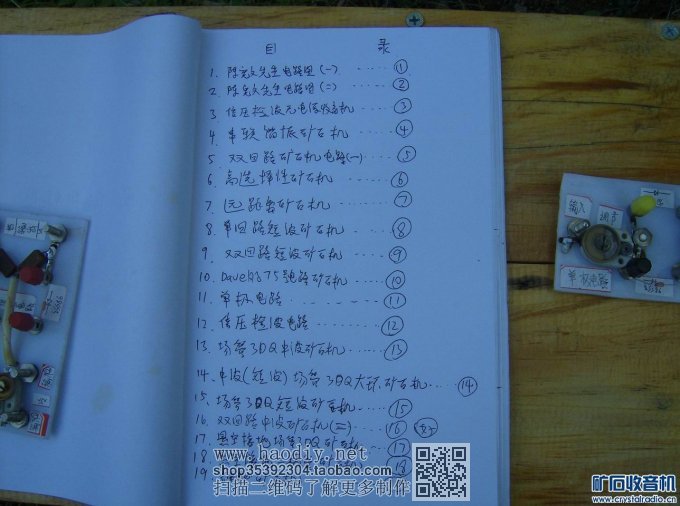 目 录
1. 陈宏文先生电路图(一)·····①
2. 陈宏文先生电路图(二)····②
3. 倍压检波无电源收音机·····③
4. 串联谐振矿石机·····④
5. 双回路矿石机电路(一)····⑤
6. 高选择性矿石机·····⑥
7. 远距离矿石机·····⑦
8. 单回路短波矿石机·····⑧
9. 双回路短波矿石机····⑨
10. Dave的75号路矿石机····⑩
11. 单机电路·····⑪
12. 倍压检波电路·····⑫
13. 场管3DQ中波矿石机····⑬
14. 中波(短波)场管3DQ大环矿石机····⑭
15. 场管3DQ短波矿石机·····⑮
16. 双回路中波矿石机(二)····⑯
17. 悬空接地场管3DQ矿石机···⑰
18
19
输入
调音
单机电路
www.haodiy.net
shop35392304.taobao.com
扫描二维码了解更多制作
矿石收音机
www.crystalradio.cn